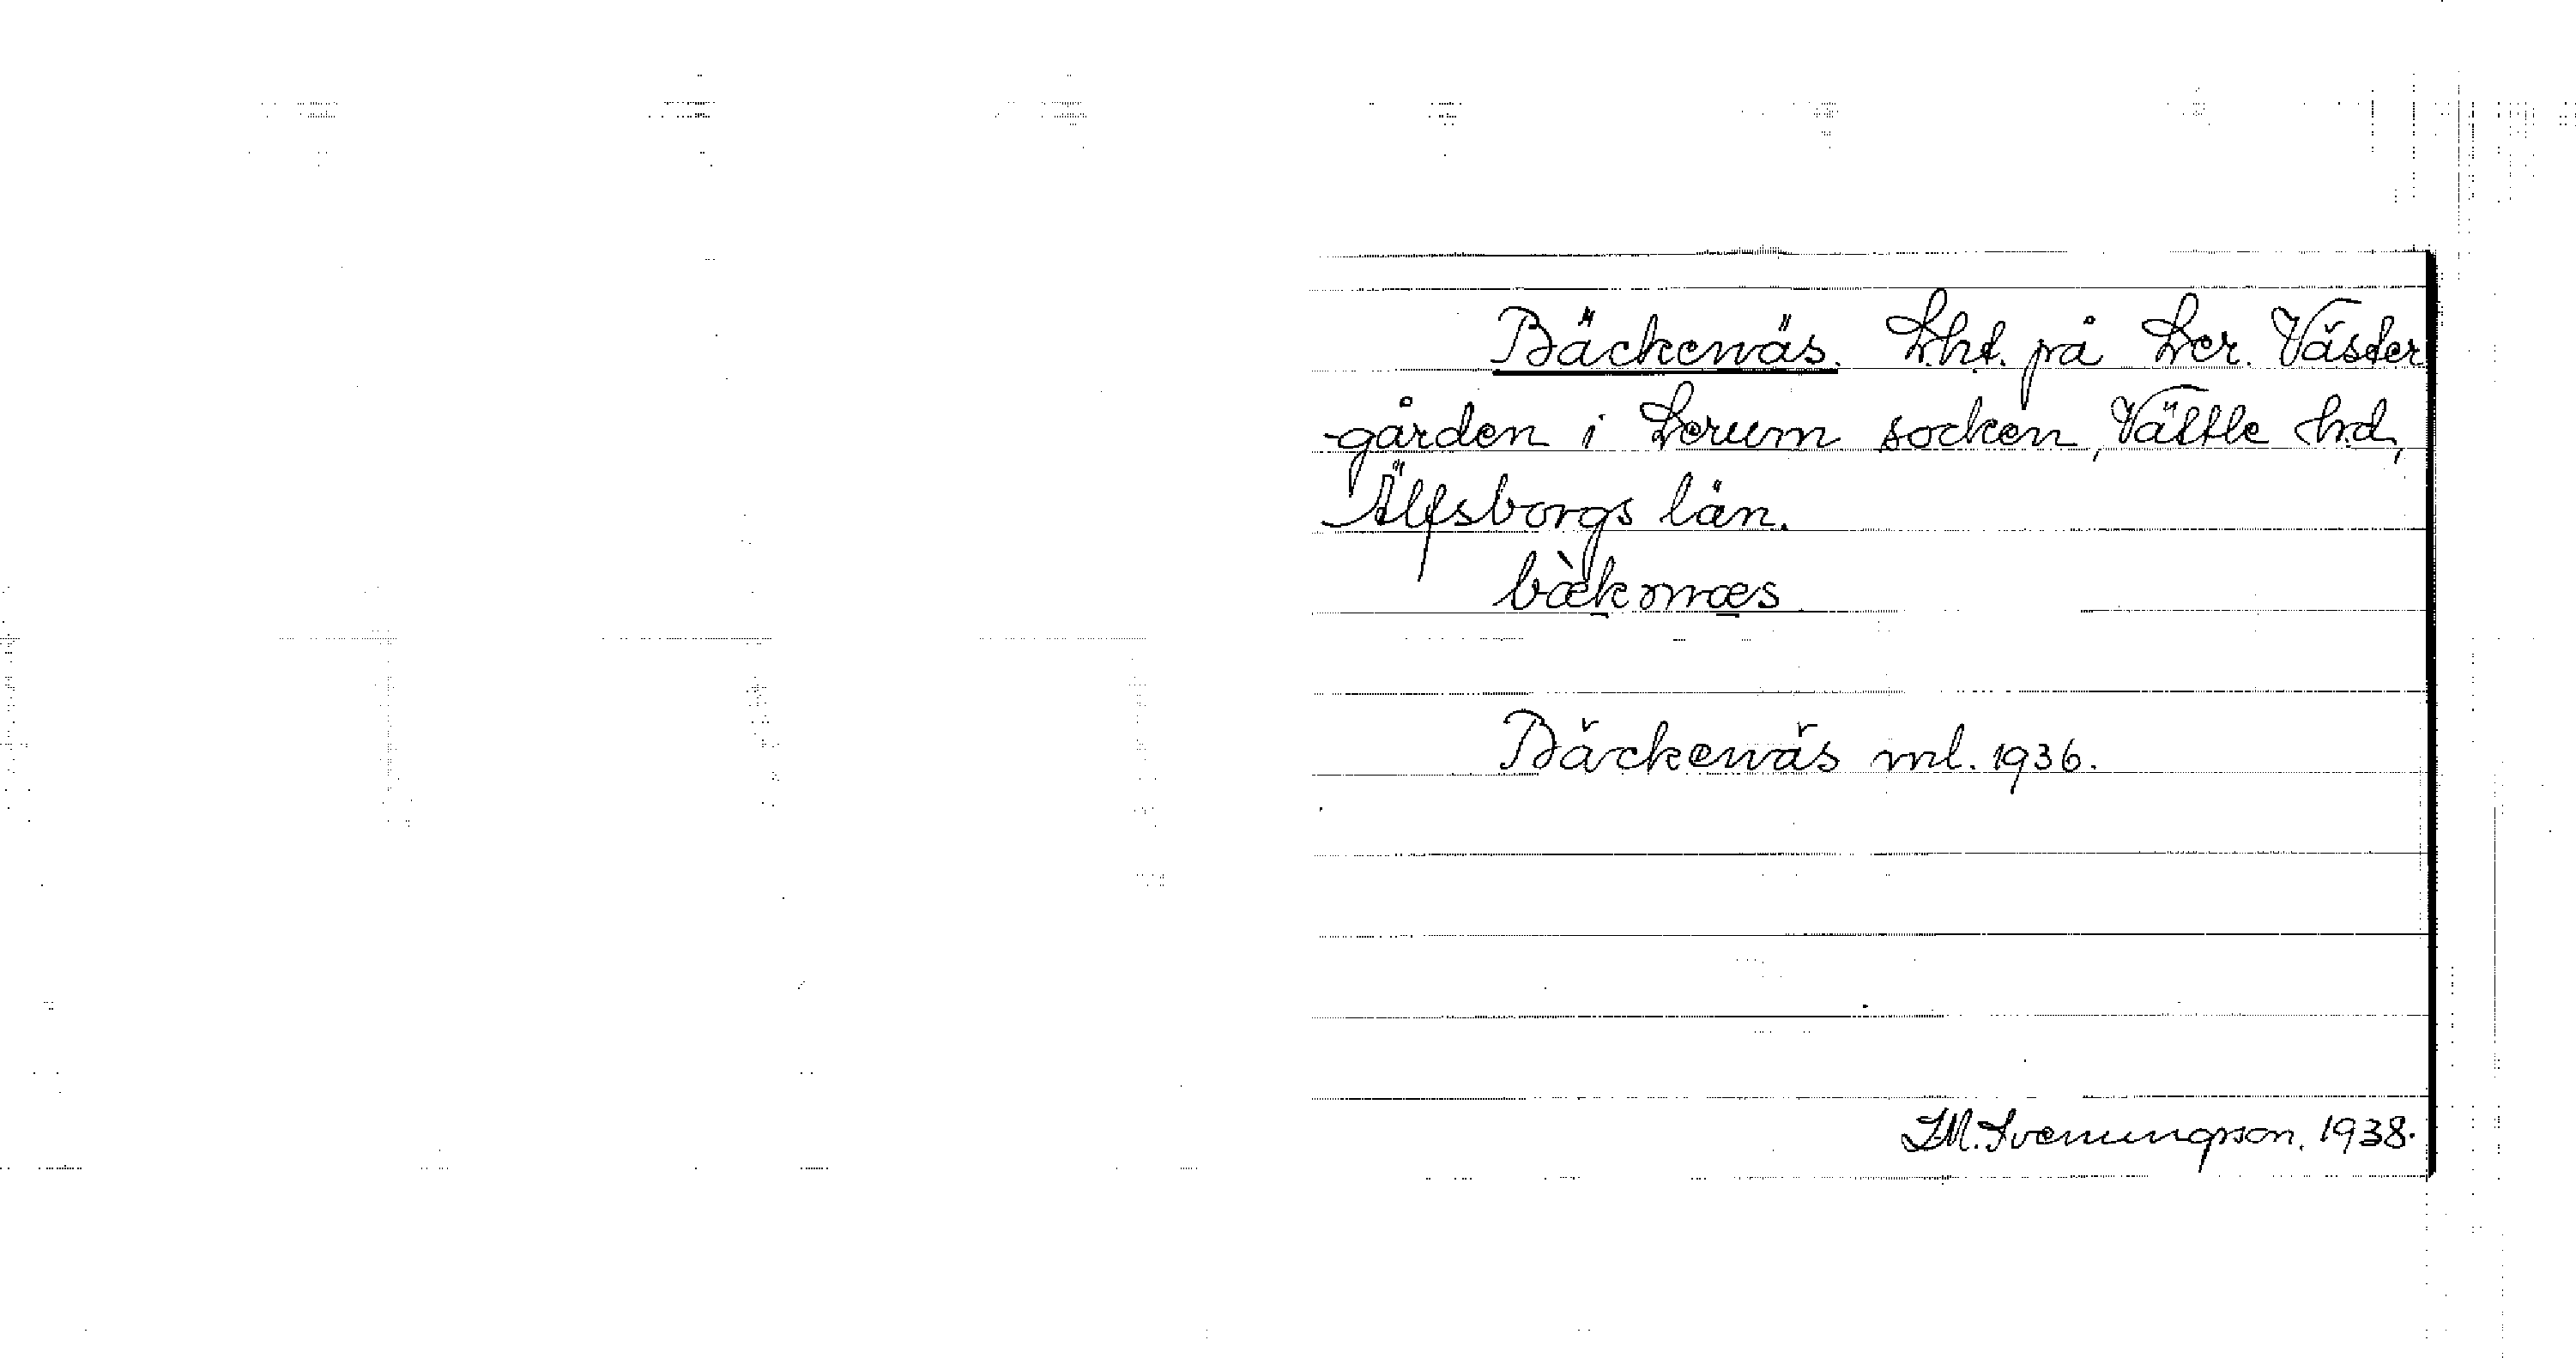 Bäckenäs. Lht. på Ler. Väster
gården i Lerum socken, Vättle hd,
Älfsborgs län.
bækenæs
Bäckenäs ml. 1936.
1938.